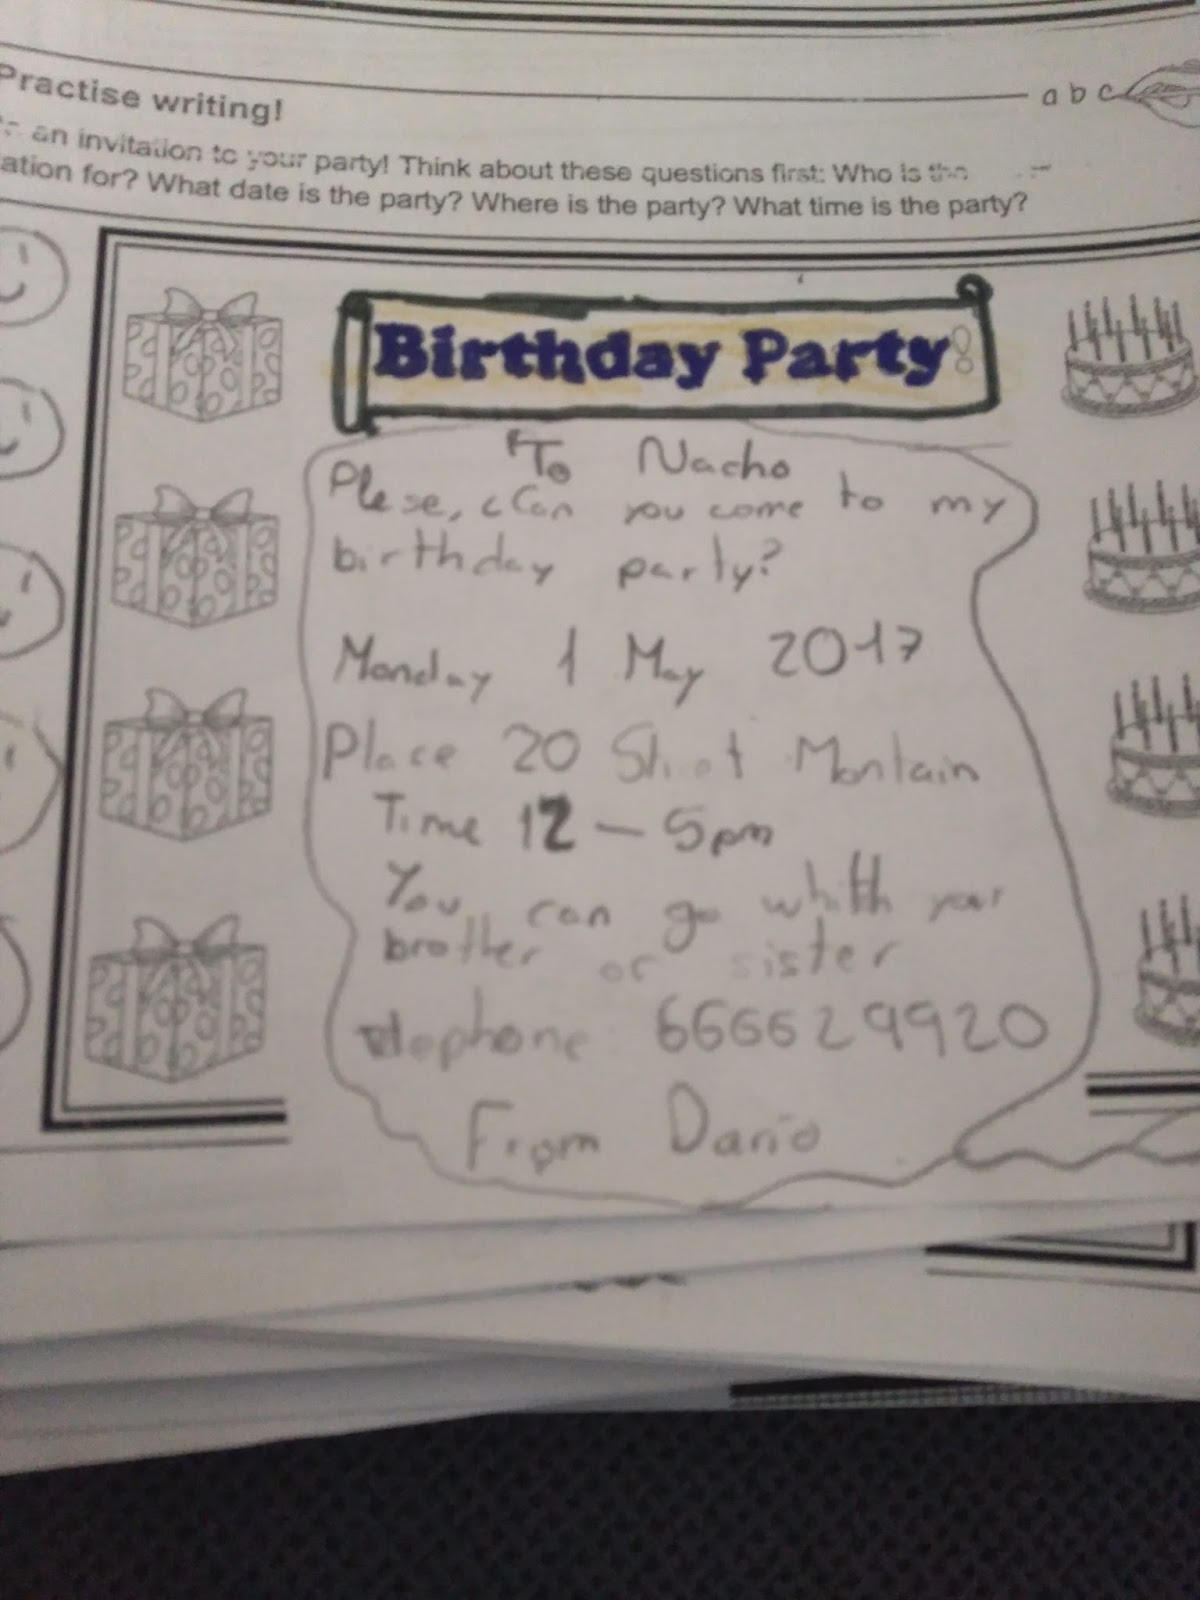 Practise writing!
a b c
an invitation to your party! Think about these questions first: Who is the
ation for? What date is the party? Where is the party? What time is the party?
Birthday Party!
To Nacho
Plese, cCan you come to my
birthday party?
Monday 1 May 2017
Place 20 Montain
Time 12 – 5pm
You can go whitth your
brother or sister
telephone: 666629920
From Dario